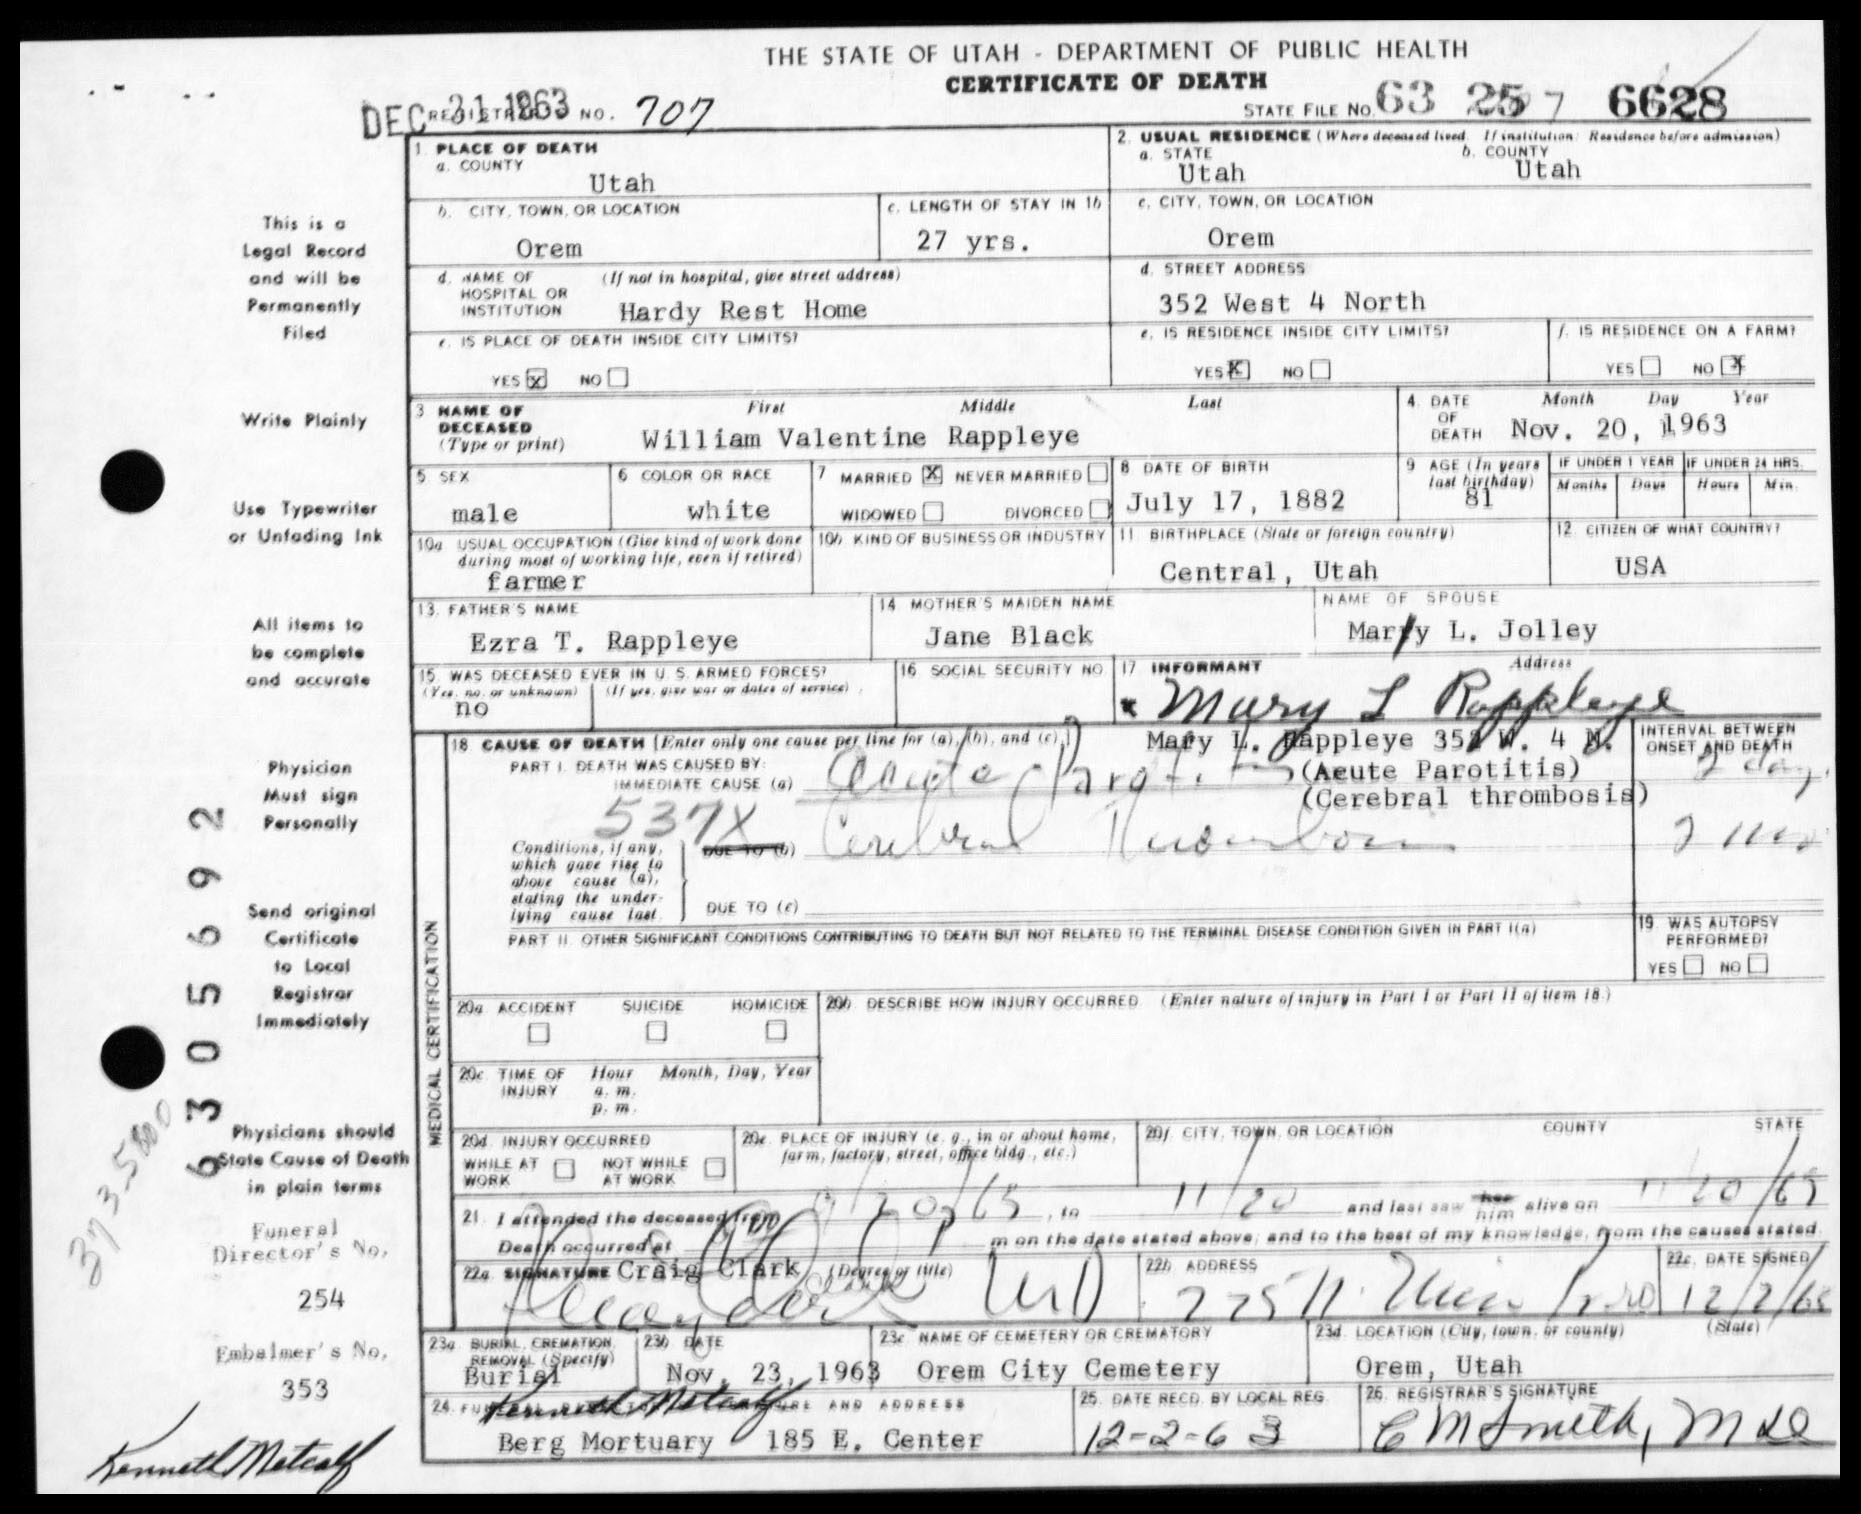 THE STATE OF UTAH - DEPARTMENT OF PUBLIC HEALTH
CERTIFICATE OF DEATH
DEC 31 1963 NO. 707
STATE FILE NO. 63 25 7 6628
1. PLACE OF DEATH
a. COUNTY
Utah
2. USUAL RESIDENCE (Where deceased lived. If institution: Residence before admission)
a. STATE
Utah
b. COUNTY
Utah
b. CITY, TOWN, OR LOCATION
Orem
c. LENGTH OF STAY IN 1b
27 yrs.
c. CITY, TOWN, OR LOCATION
Orem
d. NAME OF HOSPITAL OR INSTITUTION
(If not in hospital, give street address)
Hardy Rest Home
d. STREET ADDRESS
352 West 4 North
e. IS PLACE OF DEATH INSIDE CITY LIMITS?
YES X NO
e. IS RESIDENCE INSIDE CITY LIMITS?
YES X NO
f. IS RESIDENCE ON A FARM?
YES NO X
3 NAME OF DECEASED
(Type or print)
First Middle Last
William Valentine Rappleye
4. DATE OF DEATH
Month Day Year
Nov. 20, 1963
5. SEX
male
6 COLOR OR RACE
white
7 MARRIED X NEVER MARRIED
WIDOWED DIVORCED
8 DATE OF BIRTH
July 17, 1882
9 AGE (In years last birthday)
81
IF UNDER 1 YEAR
Months Days
IF UNDER 24 HRS.
Hours Min.
10a USUAL OCCUPATION (Give kind of work done during most of working life, even if retired)
farmer
10b KIND OF BUSINESS OR INDUSTRY
11 BIRTHPLACE (State or foreign country)
Central, Utah
12. CITIZEN OF WHAT COUNTRY?
USA
13. FATHER'S NAME
Ezra T. Rappleye
14 MOTHER'S MAIDEN NAME
Jane Black
NAME OF SPOUSE
Mary L. Jolley
15. WAS DECEASED EVER IN U. S. ARMED FORCES?
(Yes, no, or unknown) (If yes, give war or dates of service)
no
16 SOCIAL SECURITY NO
17 INFORMANT Address
Mary L Rappleye
Mary L. Rappleye 352 W. 4 N.
18 CAUSE OF DEATH [Enter only one cause per line for (a), (b), and (c).]
PART I. DEATH WAS CAUSED BY:
IMMEDIATE CAUSE (a)
Acute Parotitis
(Acute Parotitis)
(Cerebral thrombosis)
INTERVAL BETWEEN ONSET AND DEATH
2 days
537X
Conditions, if any, which gave rise to above cause (a), stating the underlying cause last.
DUE TO (b)
Cerebral Thrombosis
DUE TO (c)
PART II. OTHER SIGNIFICANT CONDITIONS CONTRIBUTING TO DEATH BUT NOT RELATED TO THE TERMINAL DISEASE CONDITION GIVEN IN PART I(a)
19. WAS AUTOPSY PERFORMED?
YES NO
MEDICAL CERTIFICATION
20a. ACCIDENT SUICIDE HOMICIDE
20b. DESCRIBE HOW INJURY OCCURRED. (Enter nature of injury in Part I or Part II of item 18.)
20c. TIME OF INJURY
Hour Month, Day, Year
a. m.
p. m.
20d. INJURY OCCURRED
WHILE AT WORK NOT WHILE AT WORK
20e. PLACE OF INJURY (e. g., in or about home, farm, factory, street, office bldg., etc.)
20f. CITY, TOWN, OR LOCATION COUNTY STATE
21. I attended the deceased from , to 11/20 and last saw him alive on
Death occurred at m on the date stated above; and to the best of my knowledge, from the causes stated.
22a. SIGNATURE Craig Clark (Degree or title)
MD
22b. ADDRESS
22c. DATE SIGNED
23a. BURIAL, CREMATION, REMOVAL (Specify)
Burial
23b. DATE
Nov. 23, 1963
23c NAME OF CEMETERY OR CREMATORY
Orem City Cemetery
23d. LOCATION (City, town, or county) (State)
Orem, Utah
24. AND ADDRESS
Kenneth Metcalf
Berg Mortuary 185 E. Center
25. DATE RECD. BY LOCAL REG.
12-2-63
26. REGISTRAR'S SIGNATURE
C M Smith, M D
This is a
Legal Record
and will be
Permanently
Filed
Write Plainly
Use Typewriter
or Unfading Ink
All items to
be complete
and accurate
Physician
Must sign
Personally
Send original
Certificate
to Local
Registrar
Immediately
Physicians should
State Cause of Death
in plain terms
Funeral
Director's No.
254
Embalmer's No.
353
Kenneth Metcalf
6305692
373-5800